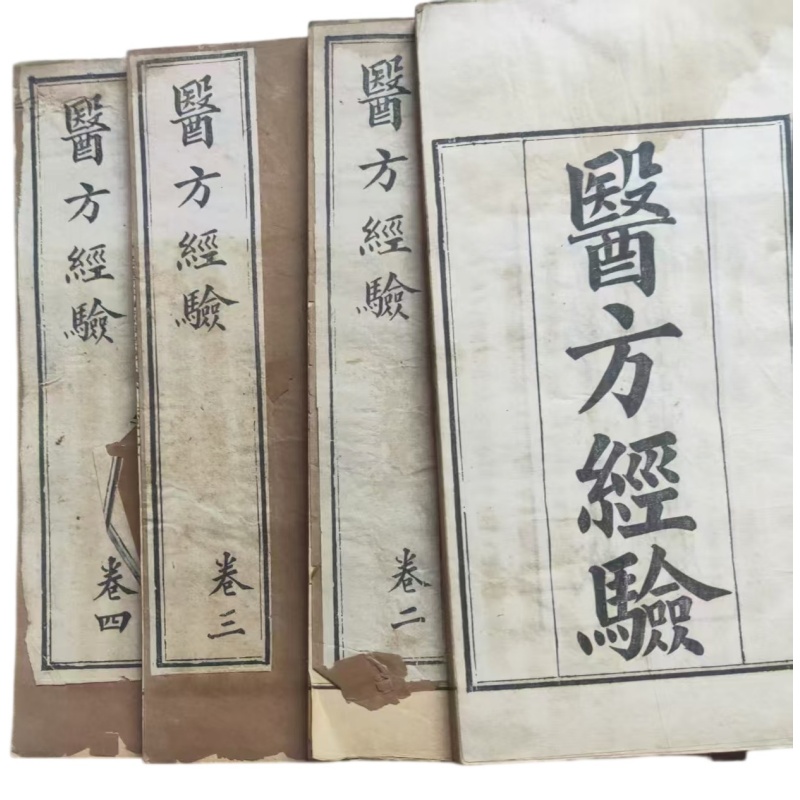 醫方經驗
醫方經驗
卷二
醫方經驗
卷三
醫方經驗
卷四